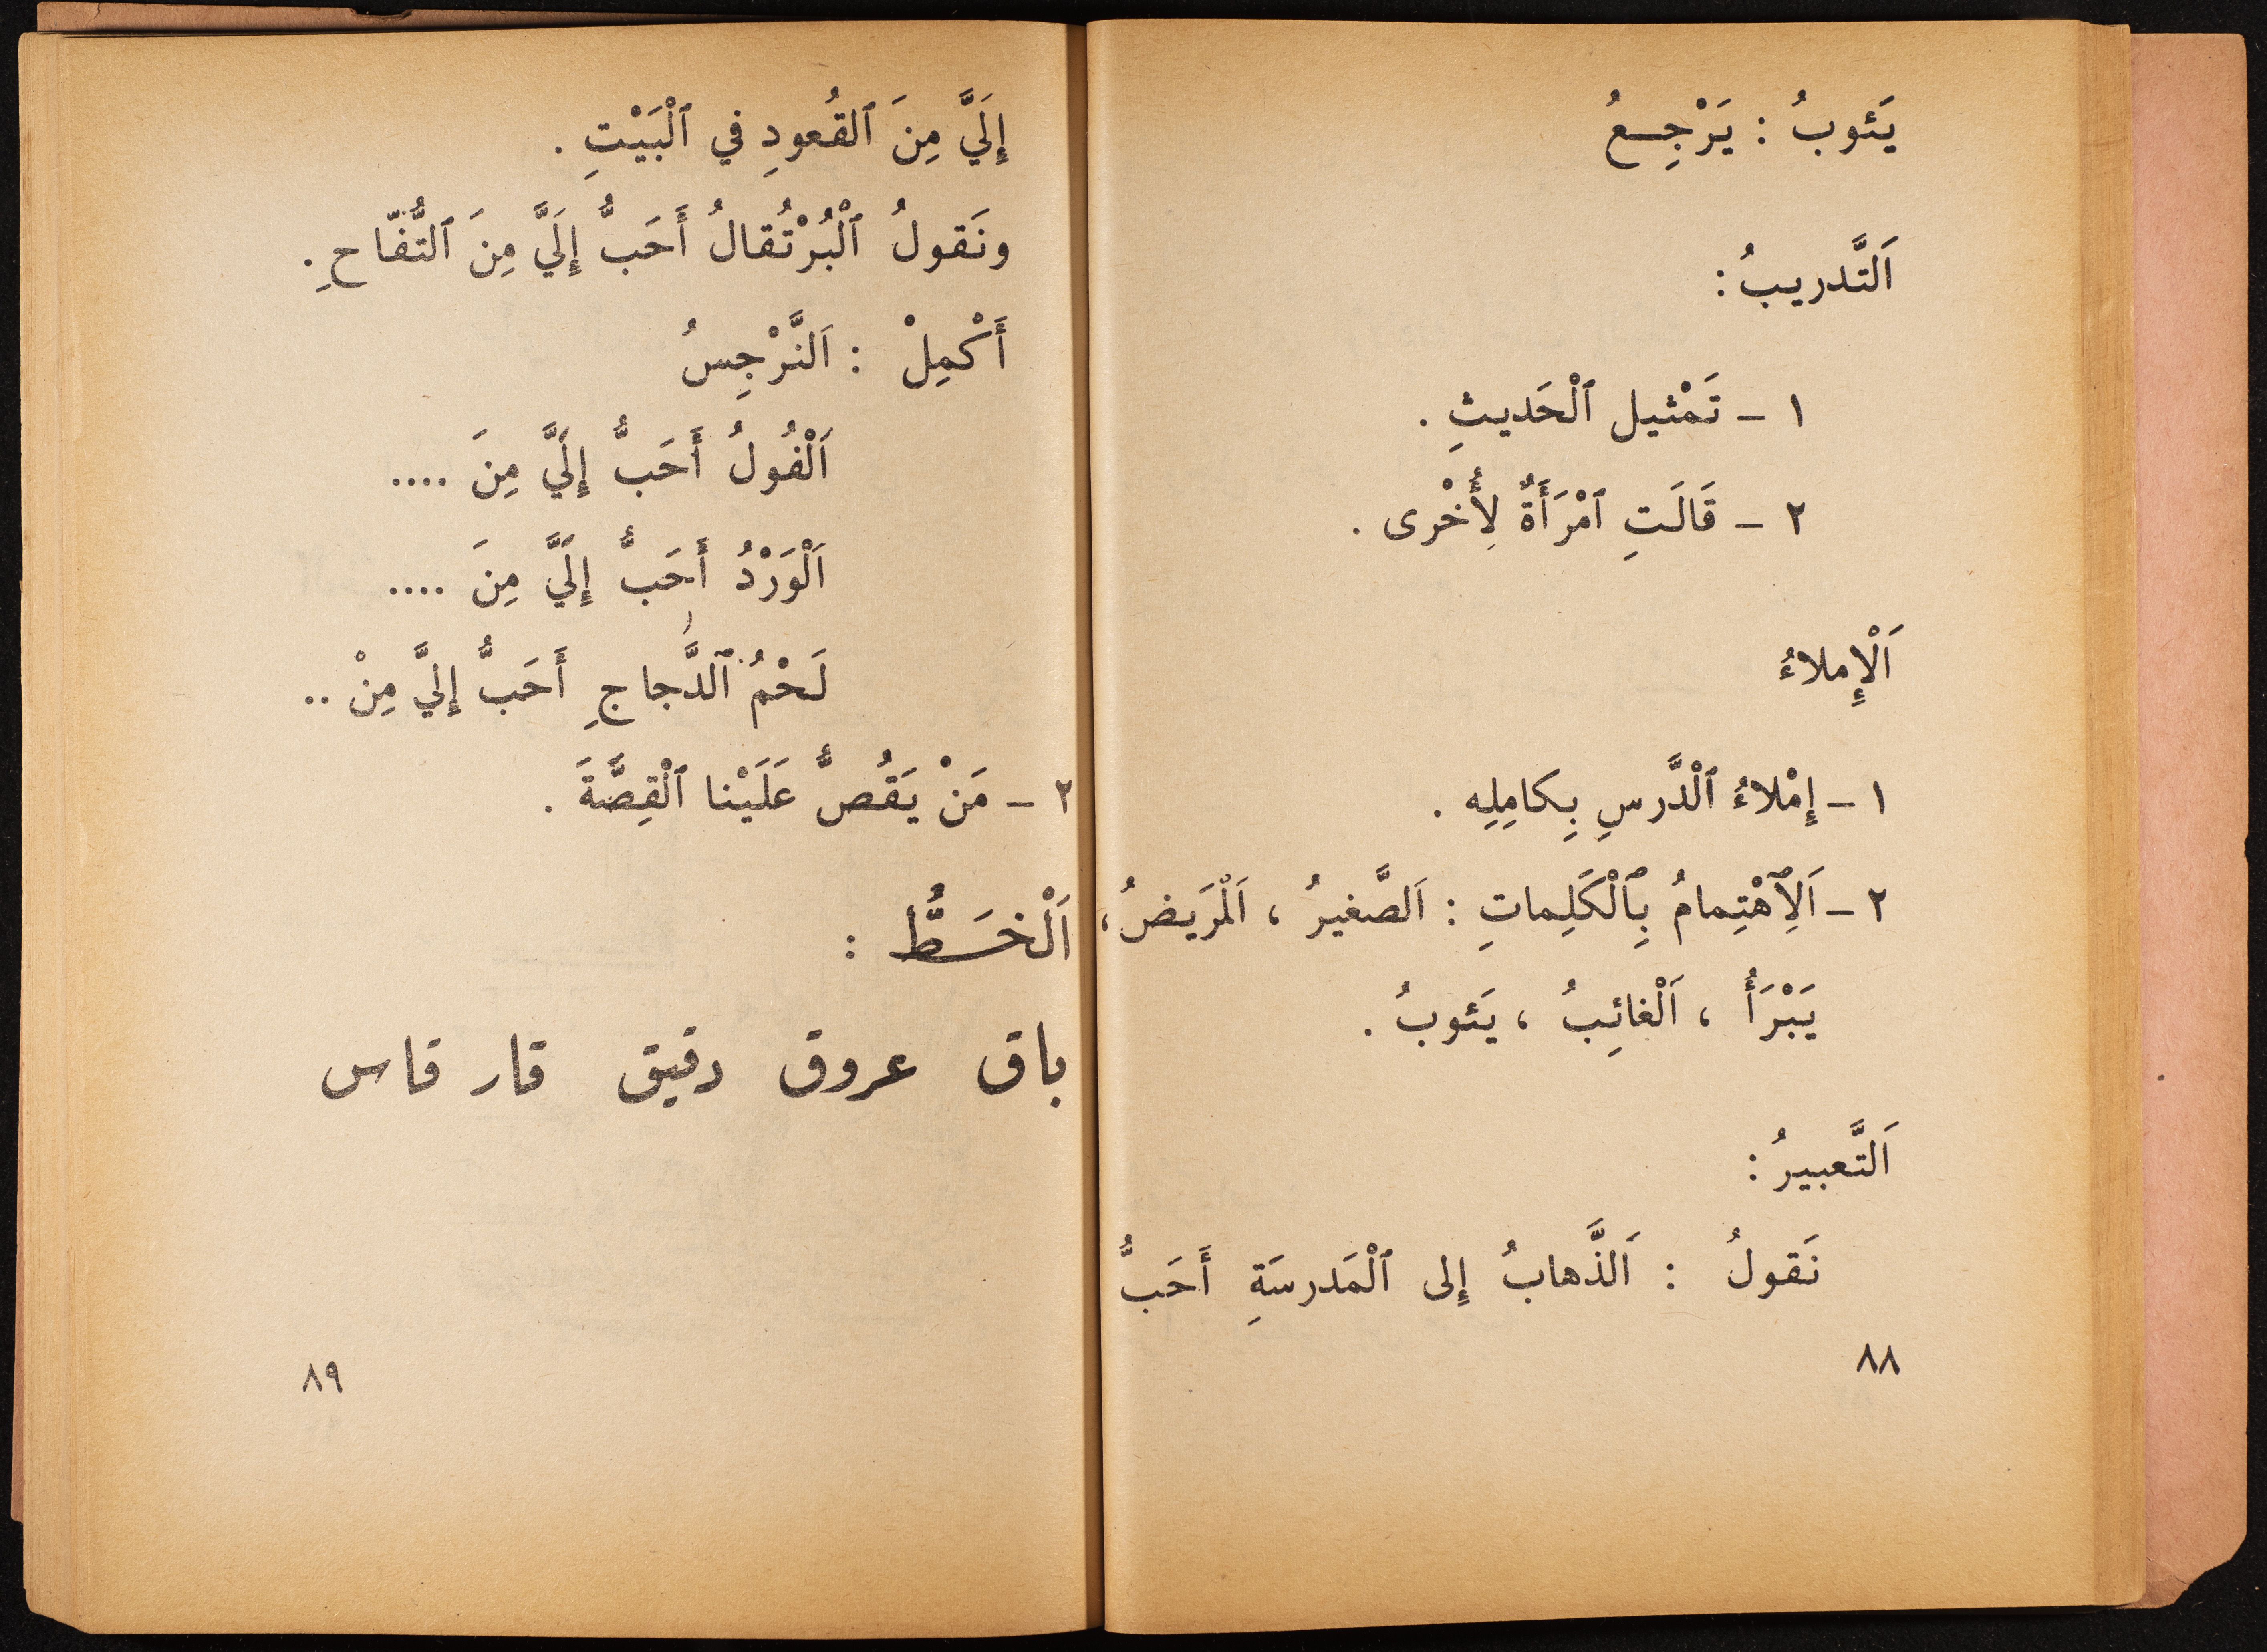 يَئوبُ : يَرْجِعُ
اَلتَّدريبُ :
١ – تَمْثيل ٱلْحَديثِ .
٢ – قَالَتِ ٱمْرَأَةٌ لِأُخْرى .
اَلْإِملاءُ
١ – إِمْلاءُ ٱلْدَّرسِ بِكامِلِه .
٢ – اَلِٱهْتِمامُ بِٱلْكَلِماتِ : اَلصَّغيرُ ، اَلْمَريضُ ،
يَبْرَأُ ، اَلْغائِبُ ، يَئوبُ .
اَلتَّعبيرُ :
نَقولُ : اَلذَّهابُ إِلى ٱلْمَدرسَةِ أَحَبُّ
٨٨
إِلَيَّ مِنَ ٱلقُعودِ في ٱلْبَيْتِ .
ونَقولُ ٱلْبُرْتُقالُ أَحَبُّ إِلَيَّ مِنَ ٱلتُّفّاحِ .
أَكْمِلْ : اَلنَّرْجِسُ
اَلْفُولُ أَحَبُّ إِلَيَّ مِنَ ....
اَلْوَرْدُ أَحَبُّ إِلَيَّ مِنَ ....
لَحْمُ ٱلدَّجاجِ أَحَبُّ إِليَّ مِنْ ..
٢ – مَنْ يَقُصُّ عَلَيْنا ٱلْقِصَّةَ .
اَلْخَطُّ :
باق عروق دقيق قار قاس
٨٩